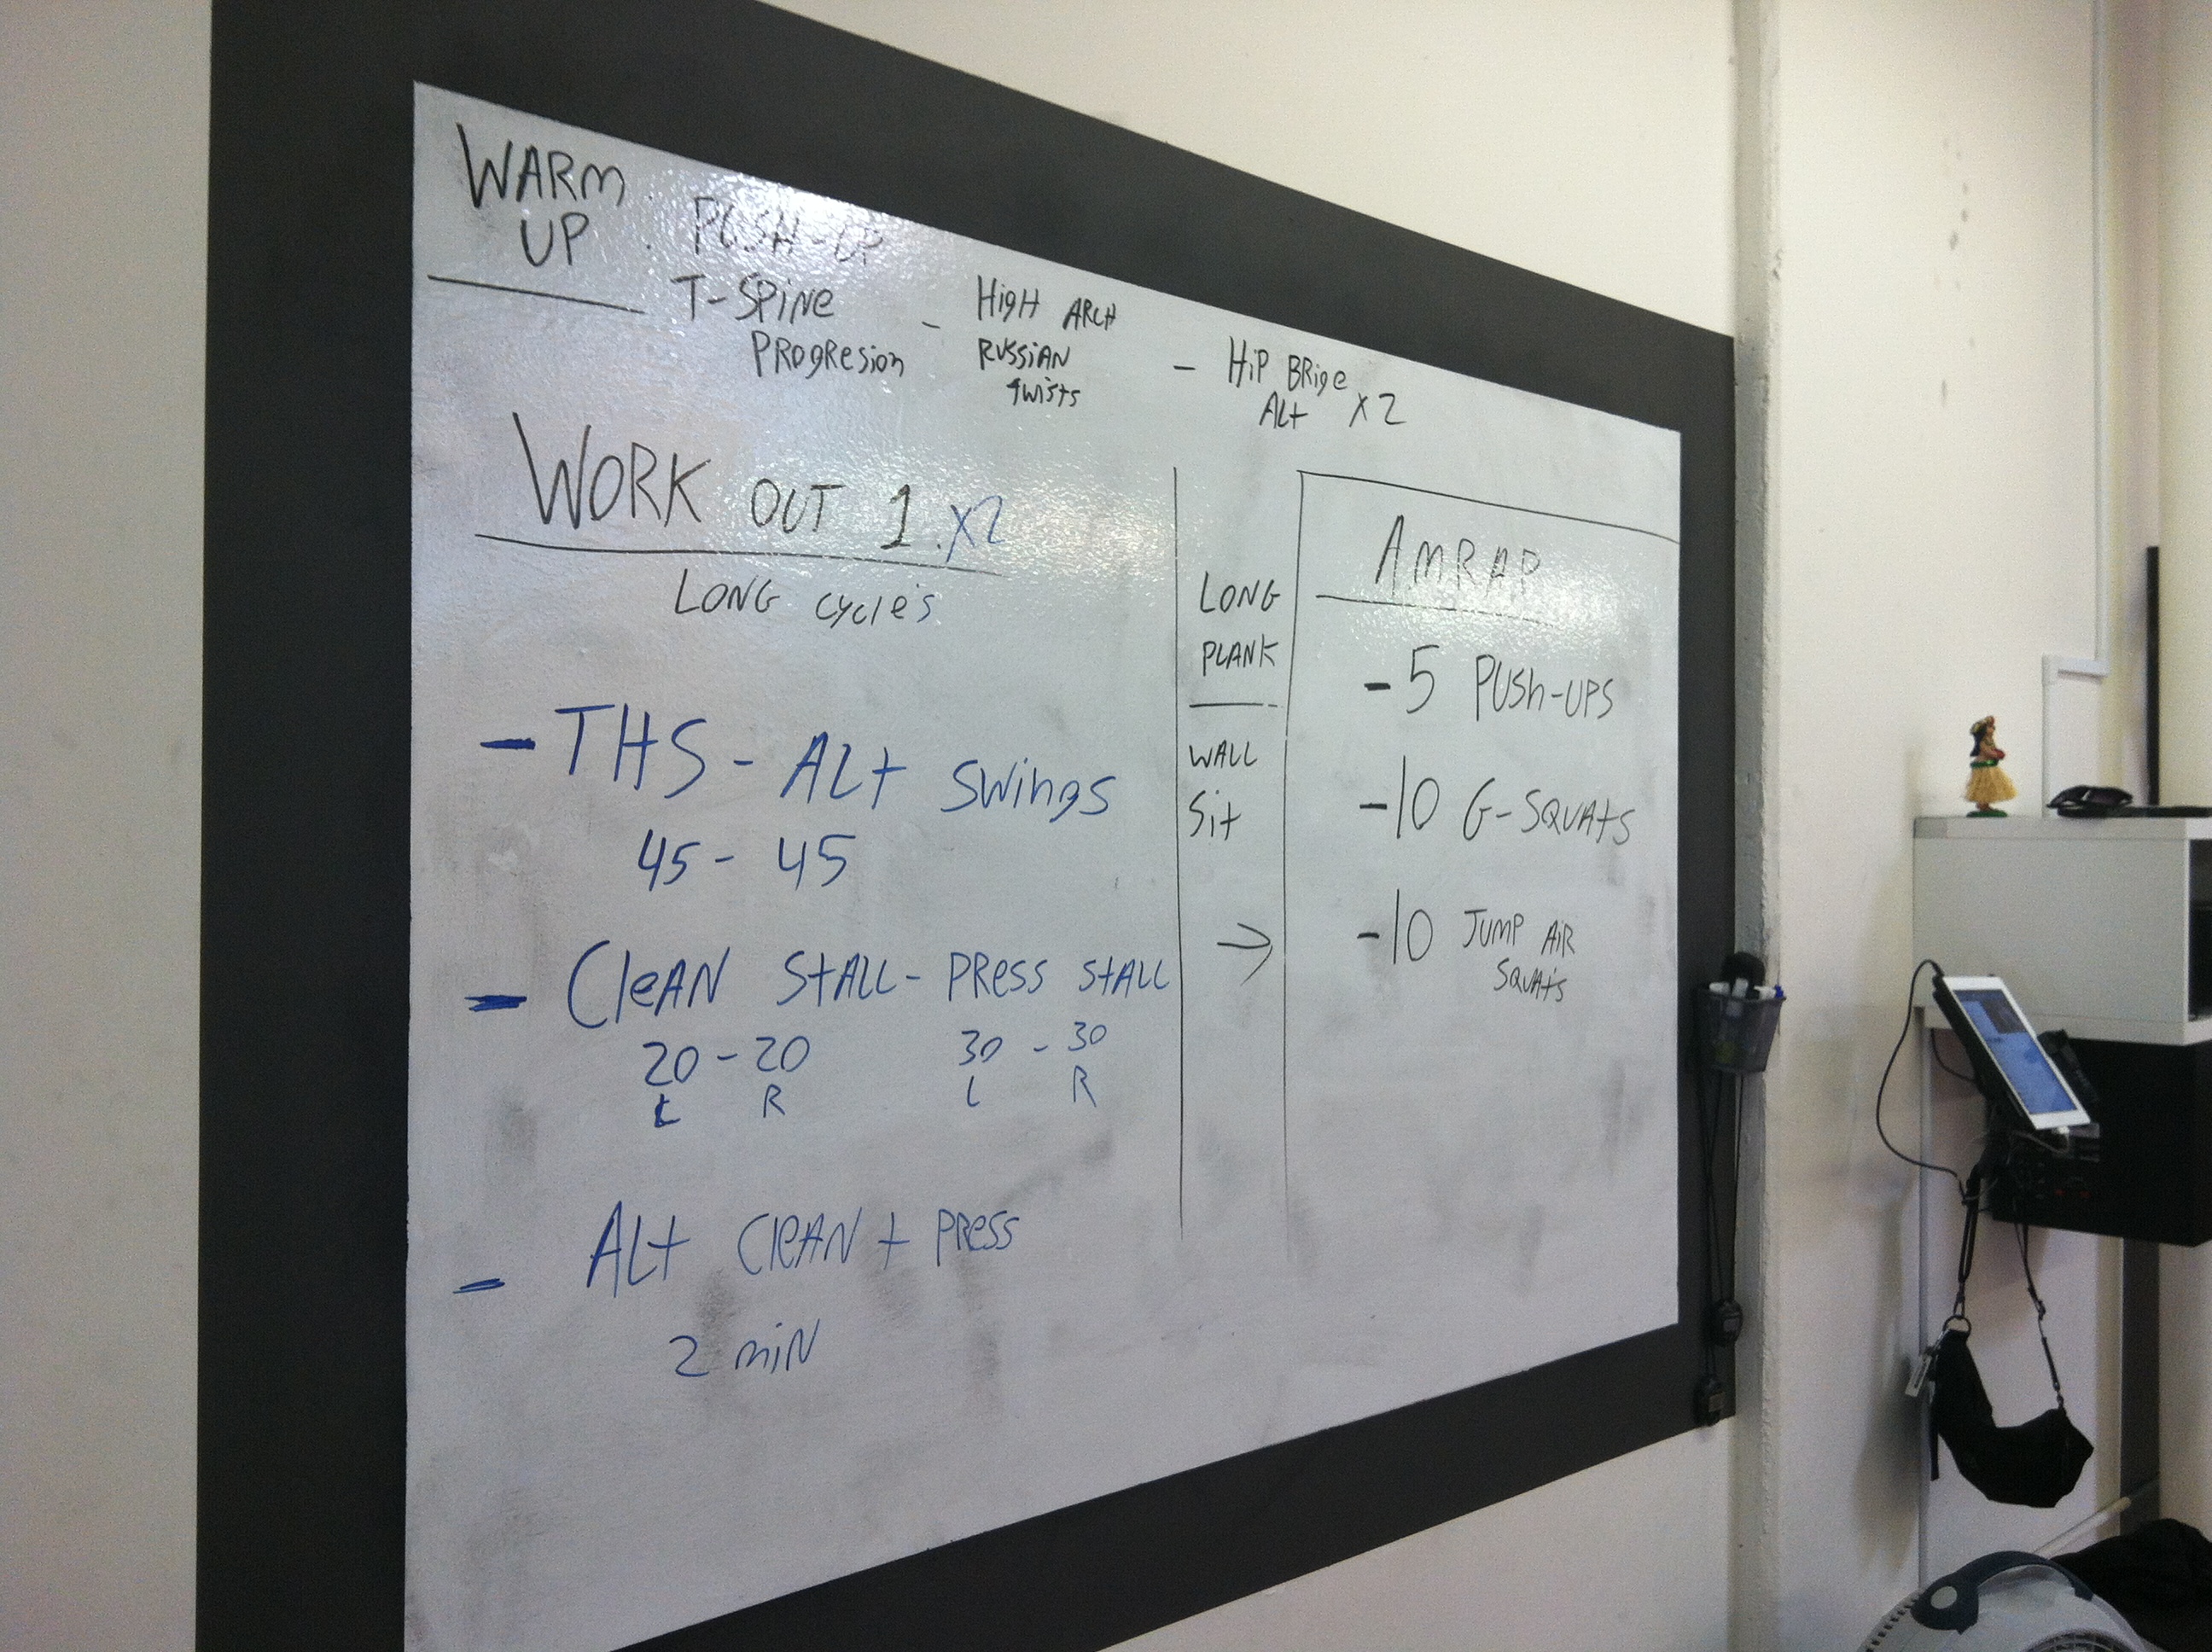 WARM
UP
PUSH-UP
T-SPINE
PROgResion
- HigH ARCH
RUSSIAN
twists
- HiP BRige
ALt X2
WORK OUT 1. X2
LONG cycle's
- THS - ALt Swings
45 - 45
- CleAN StALL - PRess StALL
20 - 20 30 - 30
L R L R
- ALt CleAN + PRess
2 miN
LONG
PLANK
WALL
Sit
→
AMRAP
- 5 PUSh-UPS
- 10 G-SQUAtS
- 10 JUMP AiR
SQUAtS